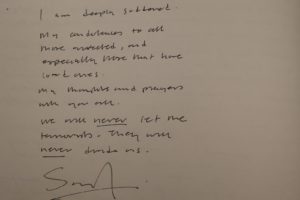 I am deeply saddened.
My condolences to all
those affected, and
especially those that have
lost ones.
My thoughts and prayers
with you all.
We will never let the
terrorists. They will
never divide us.